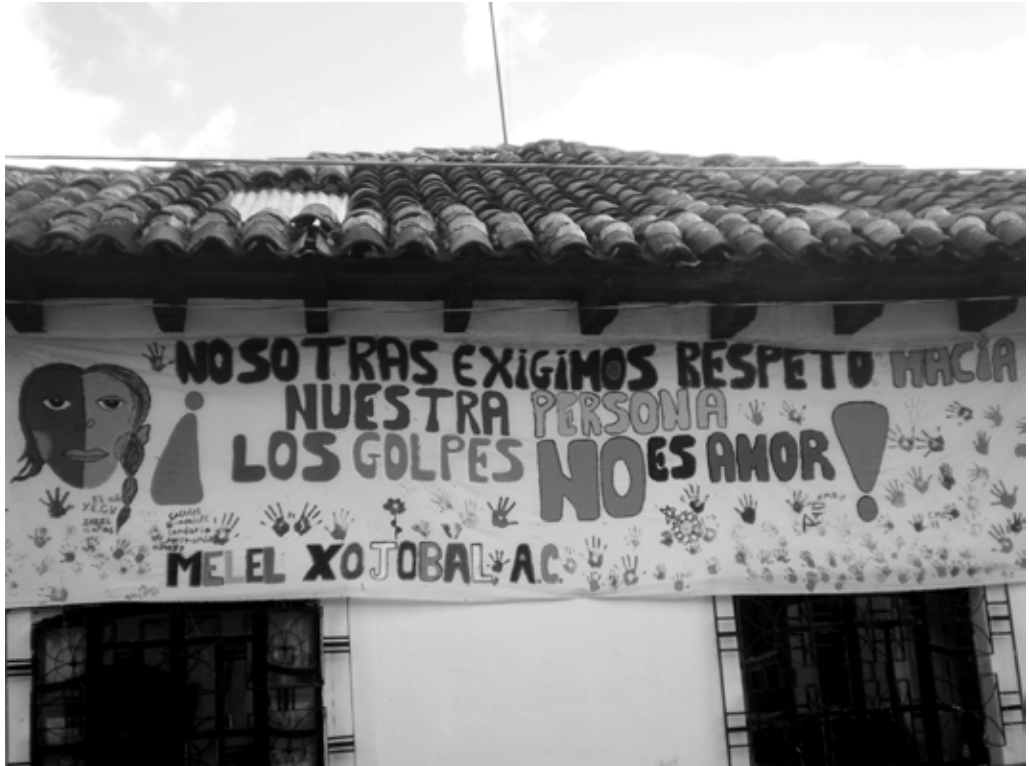 NOSOTRAS EXiGiMOS RESPETO HACíA
NUESTRA PERSONA
¡LOS GOLPES NO ES AMOR!
MELEL XOJOBAL, A.C.